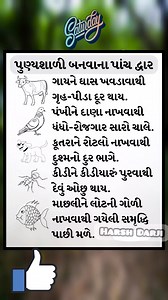 Saturday
પુણ્યશાળી બનવાના પાંચ દ્વાર
ગાયને ઘાસ ખવડાવાથી
ગૃહ-પીડા દૂર થાય.
પંખીને દાણા નાખવાથી
ધંધો-રોજગાર સારો ચાલે.
કૂતરાને રોટલો નાખવાથી
દુશ્મનો દુર ભાગે.
કીડીને કીડીયારું પુરવાથી
દેવું ઓછુ થાય.
માછલીને લોટની ગોળી
નાખવાથી ગયેલી સમૃદ્ધિ
પાછી મળે.
HARSH DARJI